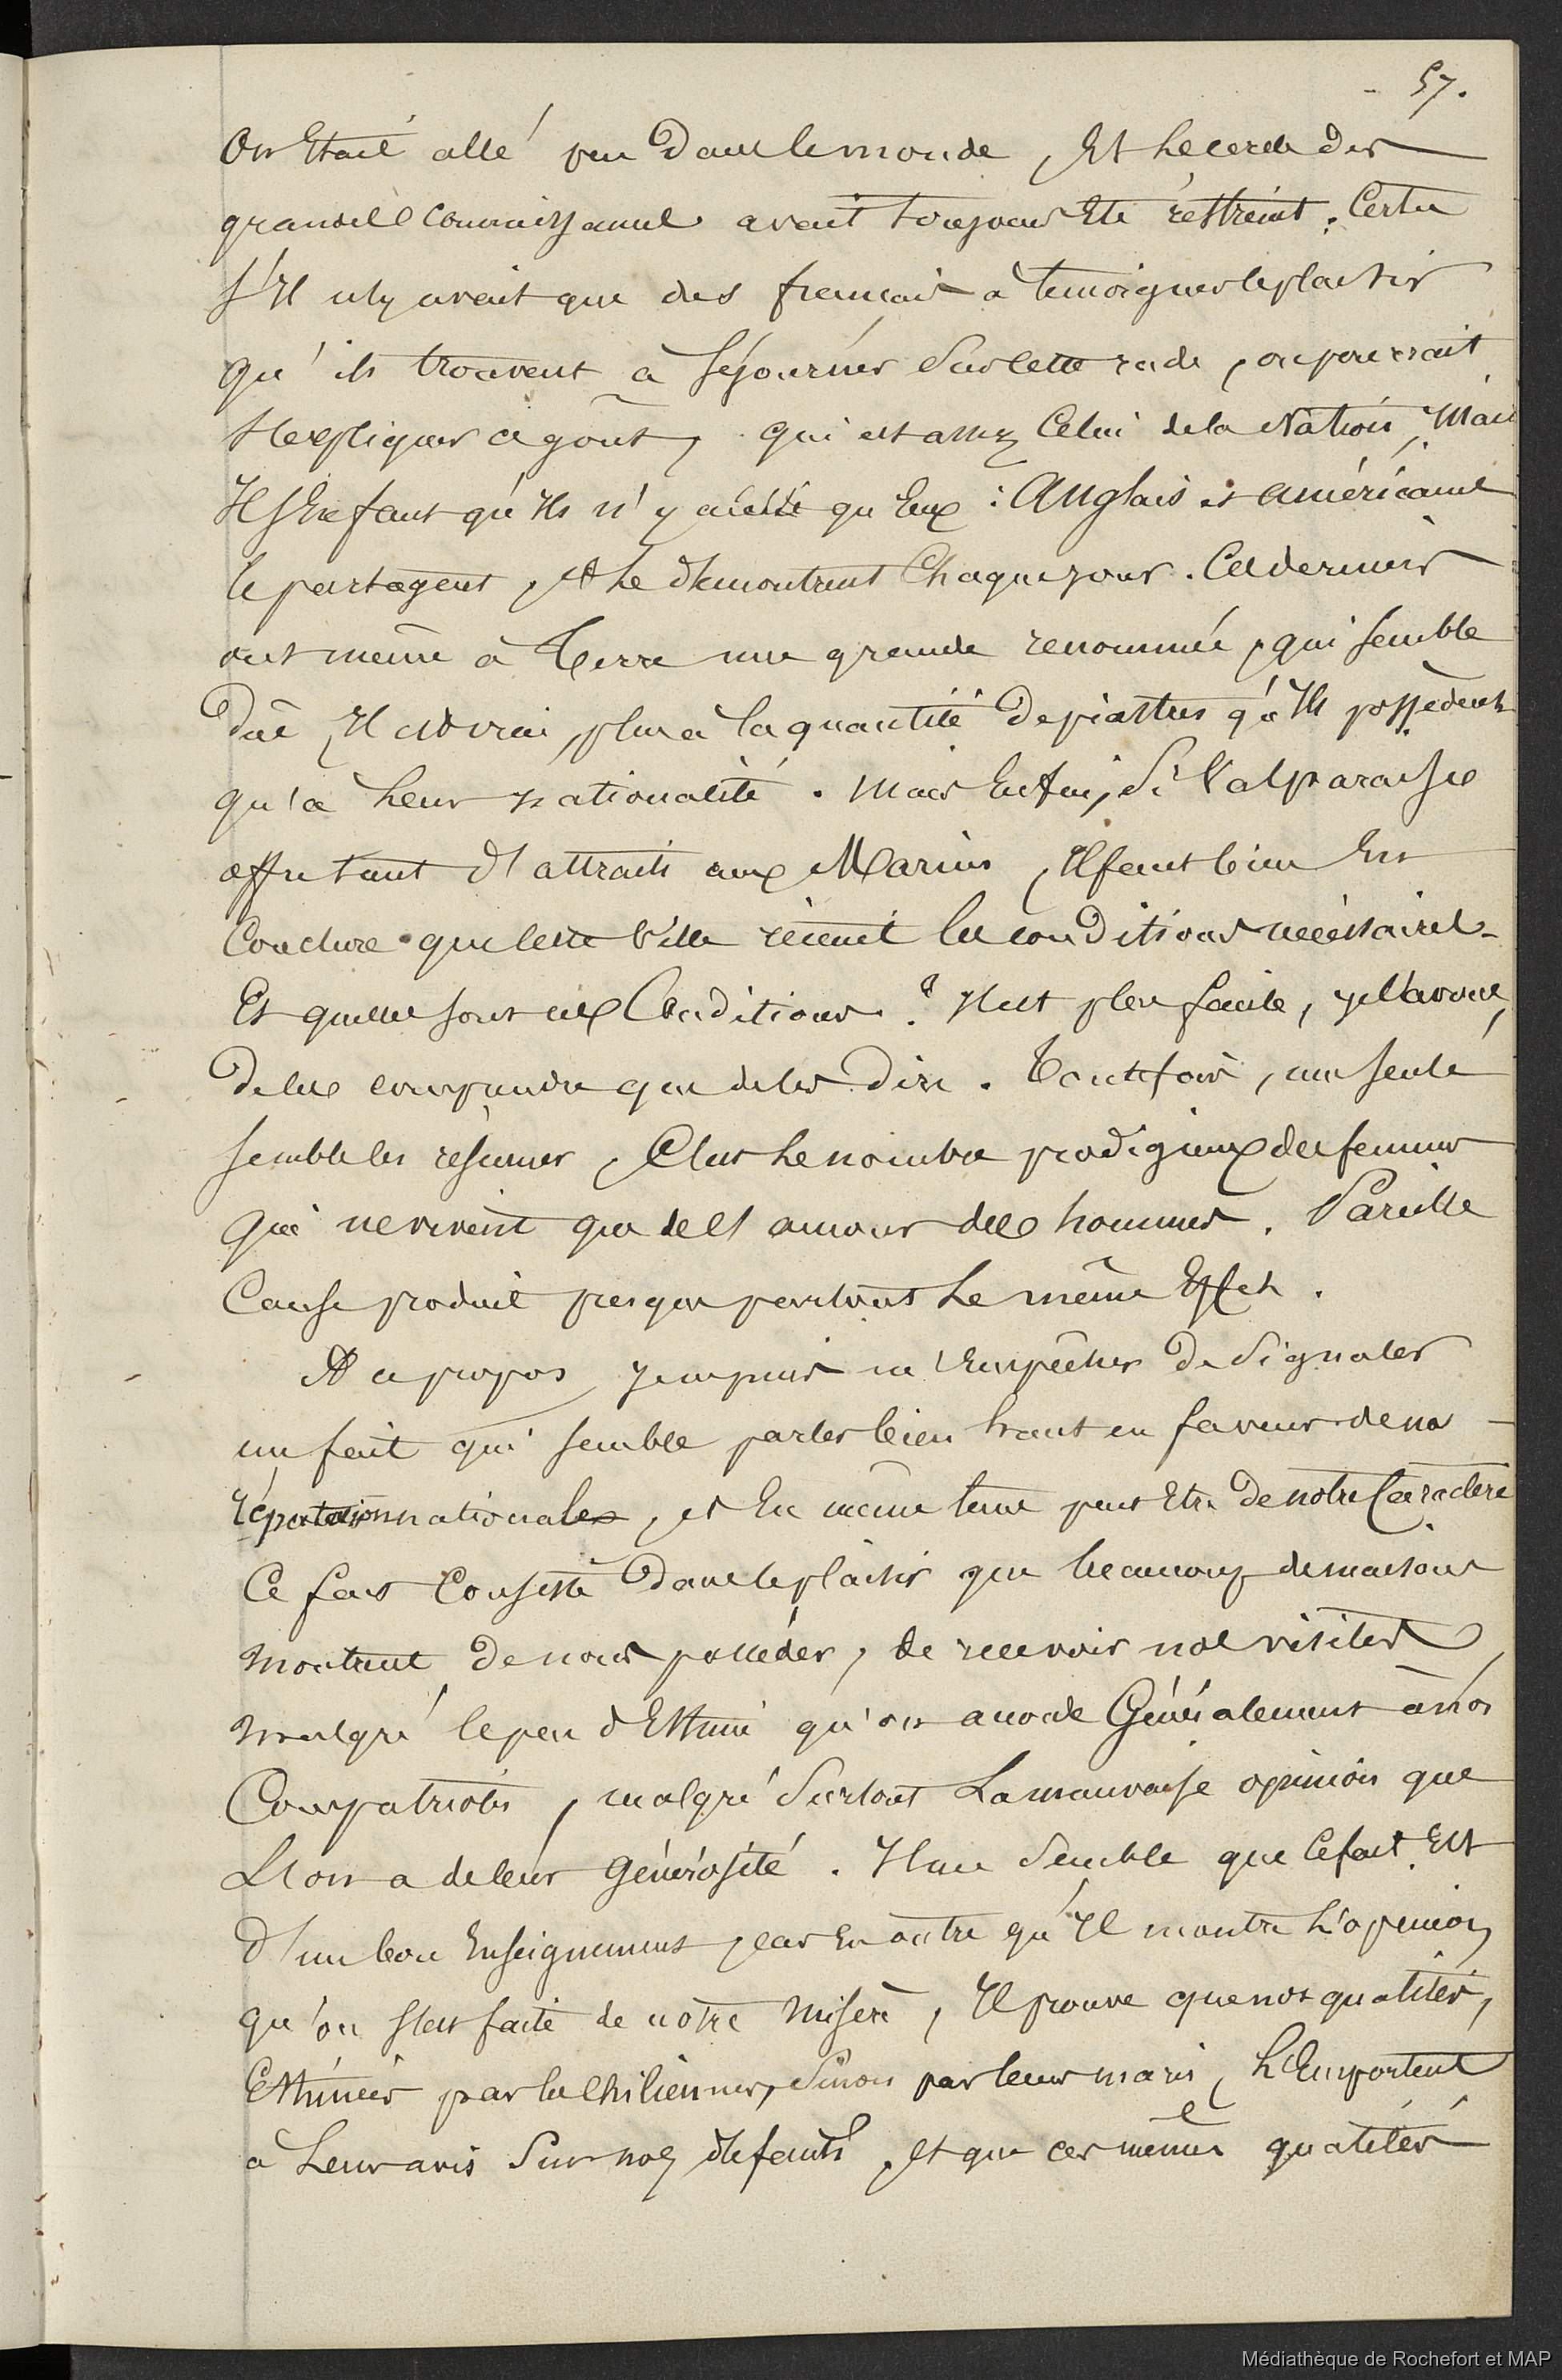 57.
On était allé peu dans le monde, et le cercle des
grandes connaissances avait toujours été restreint. Certes
s'il n'y avait que des français à témoigner le plaisir
qu'ils trouvent à séjourner sur cette rade, on pourrait
s'expliquer ce goût, qui est assez celui de la Nation, Mais
Il s'en faut qu'ils n'y aient qu'eux : Anglais et américains
le partagent, et le démontrent chaque jour. Ces derniers
ont même à terre une grande renommée, qui semble
due, Il est vrai, plus à la quantité de piastres qu'Ils possèdent
qu'à leur nationalité. Mais enfin, si Valparaiso
offre tant d'attraits aux Marins, Il faut bien en
conclure que cette ville réunit les conditions nécessaires.
Et quelles sont ces conditions ? Il est plus facile, je l'avoue,
de les comprendre que de les dire. Toutefois, une seule
semble les résumer, C'est le nombre prodigieux des femmes
qui ne vivent que de l'amour des hommes. Pareille
Cause produit presque partout le même Effet.
A ce propos, je ne puis m'empêcher de signaler
un fait qui semble parler bien haut en faveur de na
réputation nationale, et En même tems peut Etre de notre Caractère
Ce fait Consiste dans le plaisir que beaucoup de maisons
montrent de nous posséder, de recevoir nos visites,
malgré le peu d'Estime qu'on accorde Généralement à nos
Compatriotes, malgré surtout La mauvaise opinion que
L'on a de leur Générosité. Il me semble que Ce fait Est
d'un bon Enseignement, car En outre qu'Il montre L'opinion
qu'on s'est faite de notre misère, Il prouve que nos qualités,
Estimées par les Chiliennes, Sinon par leurs maris, L'Emportent
à Leur avis Sur nos défauts, Et que ces mêmes qualités